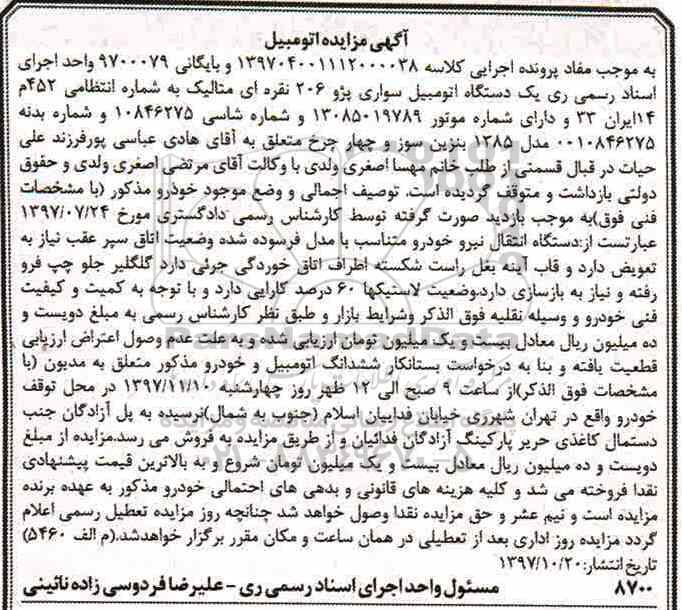 آگهی مزایده اتومبیل
به موجب مفاد پرونده اجرایی کلاسه ۱۳۹۷۰۴۰۰۱۱۱۲۰۰۰۰۳۸ و بایگانی ۹۷۰۰۰۷۹ واحد اجرای
اسناد رسمی ری یک دستگاه اتومبیل سواری پژو ۲۰۶ نقره ای متالیک به شماره انتظامی ۴۵۲م
۱۴ایران ۳۳ و دارای شماره موتور ۱۳۰۸۵۰۱۹۷۸۹ و شماره شاسی ۱۰۸۴۶۲۷۵ و شماره بدنه
۰۰۱۰۸۴۶۲۷۵ مدل ۱۳۸۵ بنزین سوز و چهار چرخ متعلق به آقای هادی عباسی پورفرزند علی
حیات در قبال قسمتی از طلب خانم مهسا اصغری ولدی با وکالت آقای مرتضی اصغری ولدی و حقوق
دولتی بازداشت و متوقف گردیده است. توصیف اجمالی و وضع موجود خودرو مذکور (با مشخصات
فنی فوق)به موجب بازدید صورت گرفته توسط کارشناس رسمی دادگستری مورخ ۱۳۹۷/۰۷/۲۴
عبارتست از:دستگاه انتقال نیرو خودرو متناسب با مدل فرسوده شده وضعیت اتاق سپر عقب نیاز به
تعویض دارد و قاب آینه بغل راست شکسته اطراف اتاق خوردگی جزئی دارد گلگلیر جلو چپ فرو
رفته و نیاز به بازسازی دارد.وضعیت لاستیکها ۶۰ درصد کارایی دارد و با توجه به کمیت و کیفیت
فنی خودرو و وسیله نقلیه فوق الذکر وشرایط بازار و طبق نظر کارشناس رسمی به مبلغ دویست و
ده میلیون ریال معادل بیست و یک میلیون تومان ارزیابی شده و به علت عدم وصول اعتراض ارزیابی
قطعیت یافته و بنا به درخواست بستانکار ششدانگ اتومبیل و خودرو مذکور متعلق به مدیون (با
مشخصات فوق الذکر)از ساعت ۹ صبح الی ۱۲ ظهر روز چهارشنبه ۱۳۹۷/۱۱/۱۰ در محل توقف
خودرو واقع در تهران شهرری خیابان فداییان اسلام (جنوب به شمال)نرسیده به پل آزادگان جنب
دستمال کاغذی حریر پارکینگ آزادگان فدائیان و از طریق مزایده به فروش می رسد.مزایده از مبلغ
دویست و ده میلیون ریال معادل بیست و یک میلیون تومان شروع و به بالاترین قیمت پیشنهادی
نقدا فروخته می شد و کلیه هزینه های قانونی و بدهی های احتمالی خودرو مذکور به عهده برنده
مزایده است و نیم عشر و حق مزایده نقدا وصول خواهد شد چنانچه روز مزایده تعطیل رسمی اعلام
گردد مزایده روز اداری بعد از تعطیلی در همان ساعت و مکان مقرر برگزار خواهدشد.(م الف ۵۴۶۰)
تاریخ انتشار:۱۳۹۷/۱۰/۲۰
۸۷۰۰ مسئول واحد اجرای اسناد رسمی ری - علیرضا فردوسی زاده نائینی